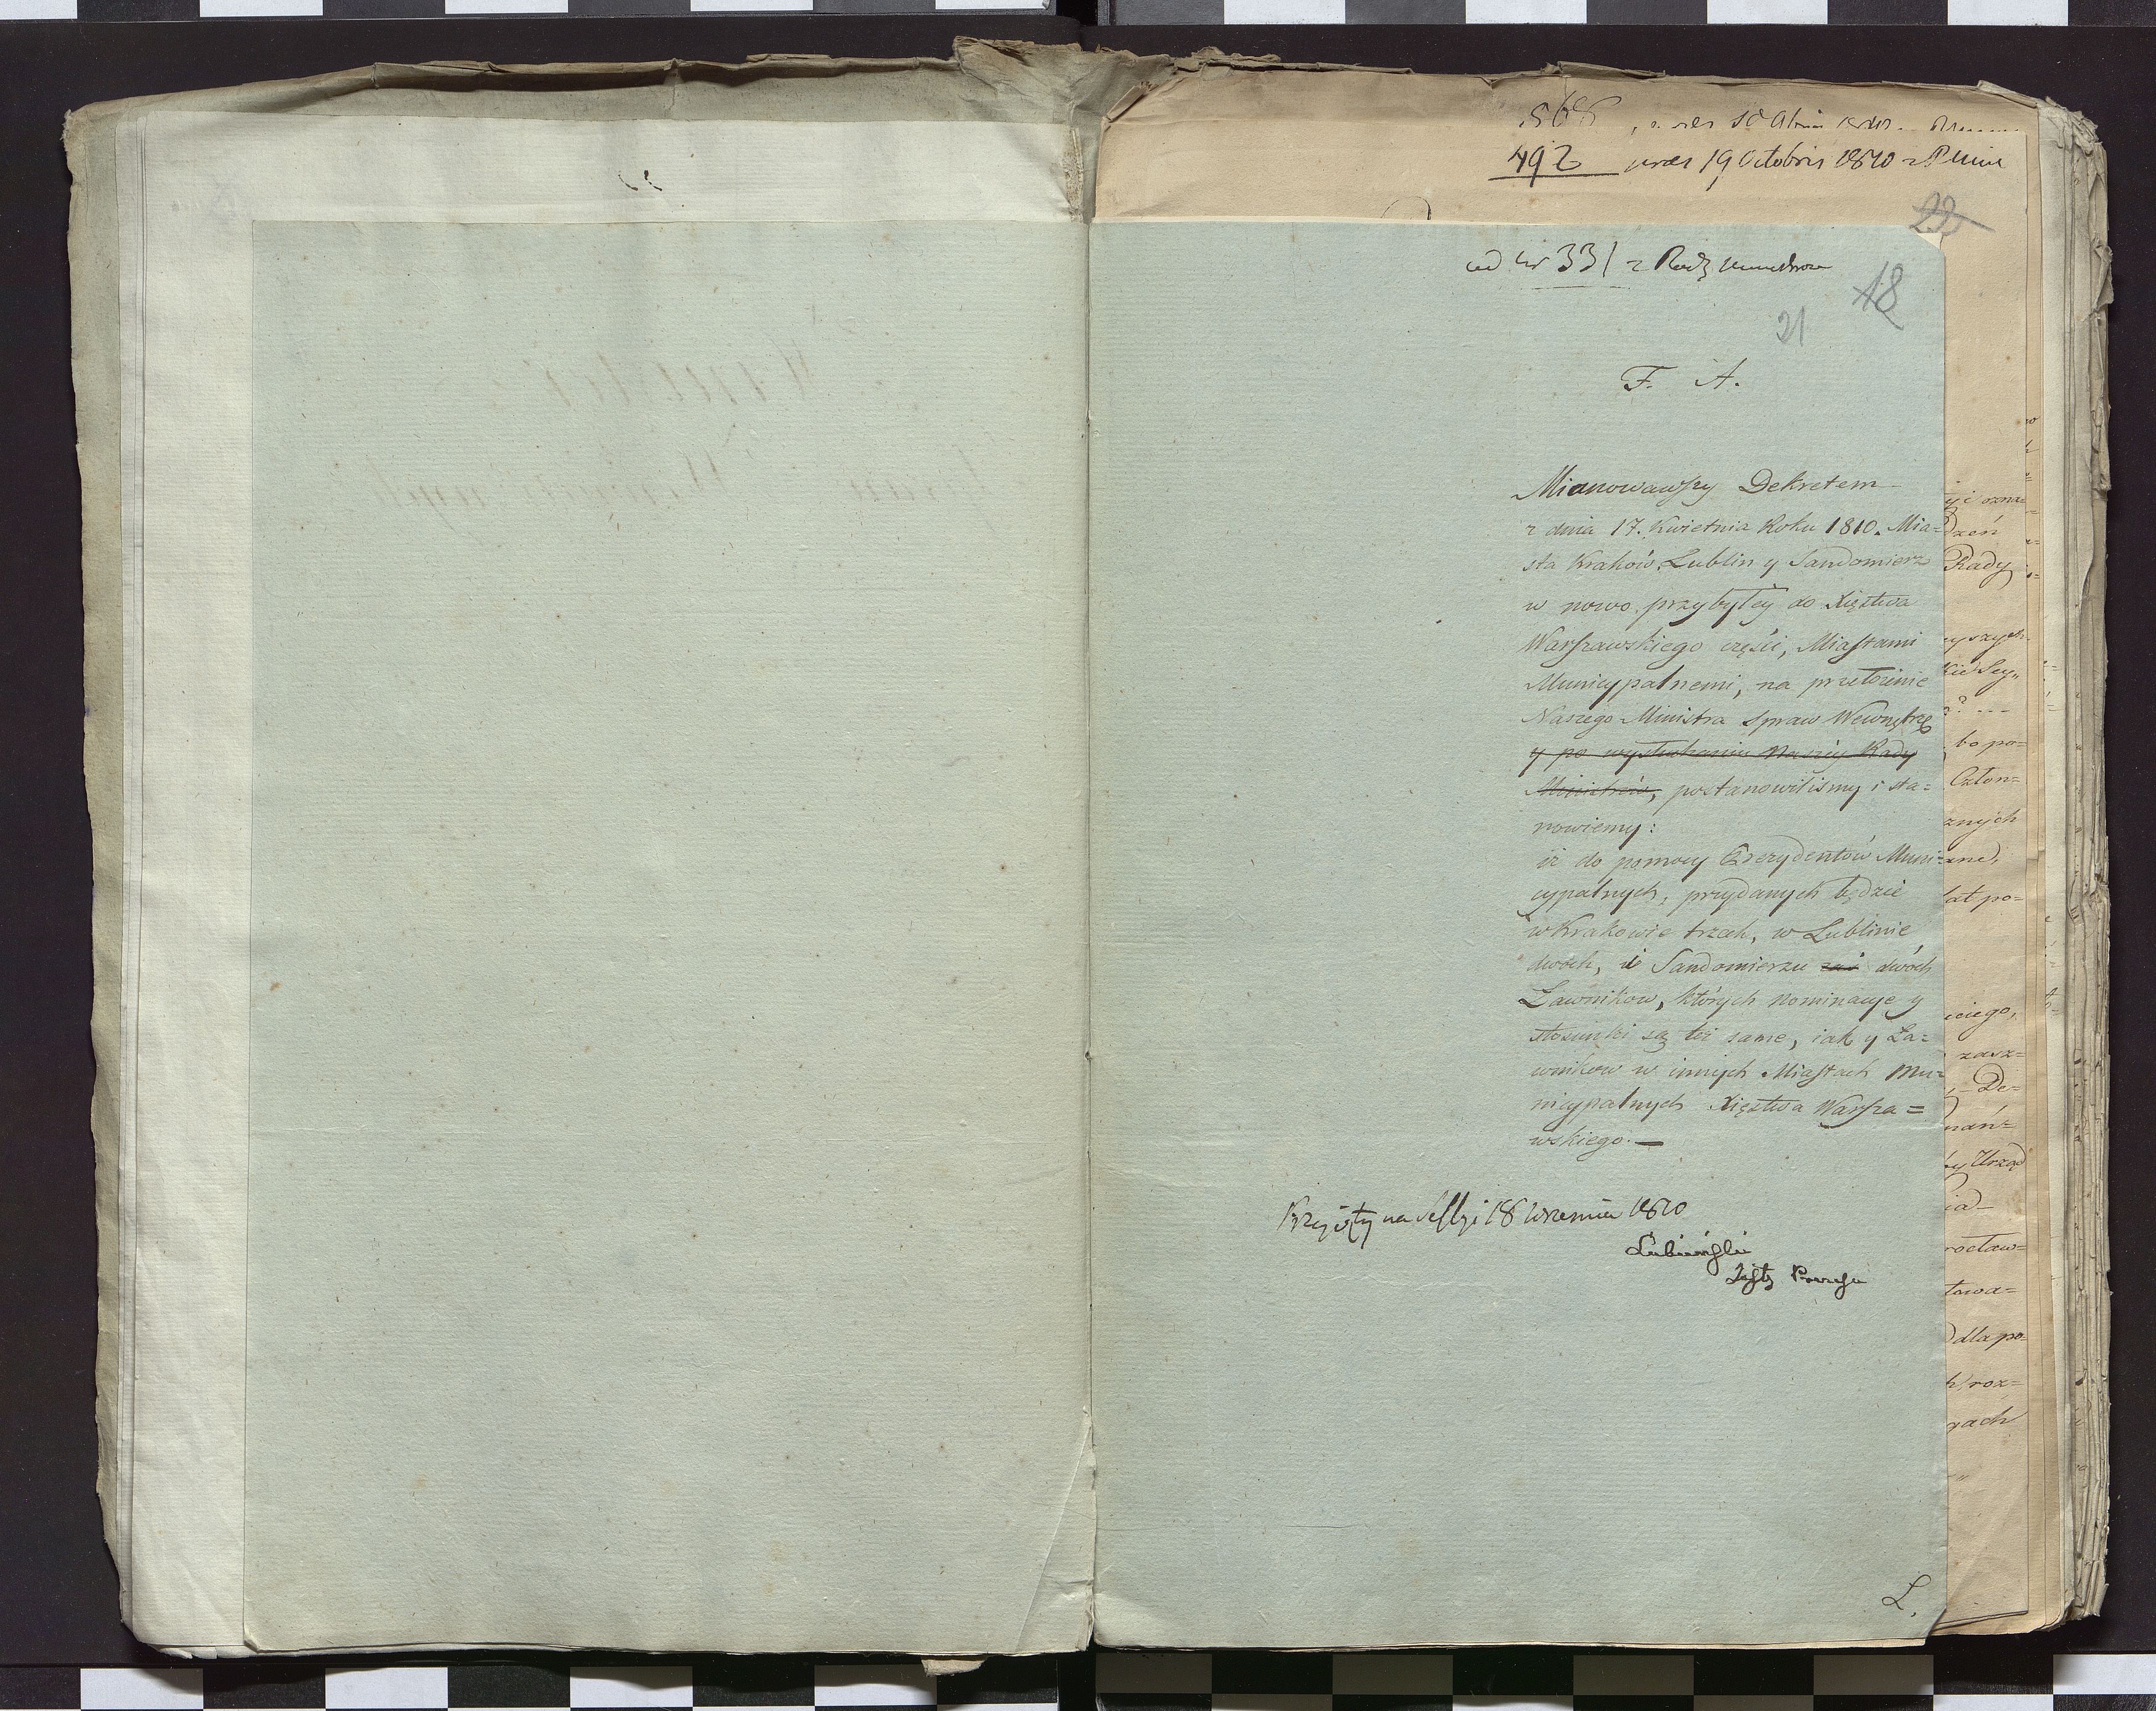 568
492 pres 19 Octobris 1810 z RMin
22
ad nr 331 z Rady Ministrow
18
21
F. A.
Mianowawszy Dekretem
z dnia 17. Kwietnia Roku 1810. Mia=
sta Kraków, Lublin y Sandomierz
w nowo przybyłey do Xięztwa
Warszawskiego części, Miastami
Municypalnemi, na przełożenie
Naszego Ministra Spraw Wewnętrz
y po wysłuchaniu Naszéy Rady
Ministrów, postanowiliśmy i sta=
nowiemy:
iż do pomocy Prezydentów Muni=
cypalnych, przydanych będzie
w Krakowie trzech, w Lublinie
dwóch, w Sandomierzu zaś dwóch
Ławnikow, których nominacye y
stosunki są też same, iak y Ła=
wnikow w innych Miastach Mu=
nicypalnych Xięztwa Warsza=
wskiego.—
Przyięty na Sessyi 18 Wrzesnia 1810
Łubieński
Zastę Prezesa
L.
y i ozna=
dzeń
Rady
bo po=
Człon=
znych
lat po=
iciego,
zasz=
De=
by Urząd
rocław=
towa=
dla po=
roz=
gach